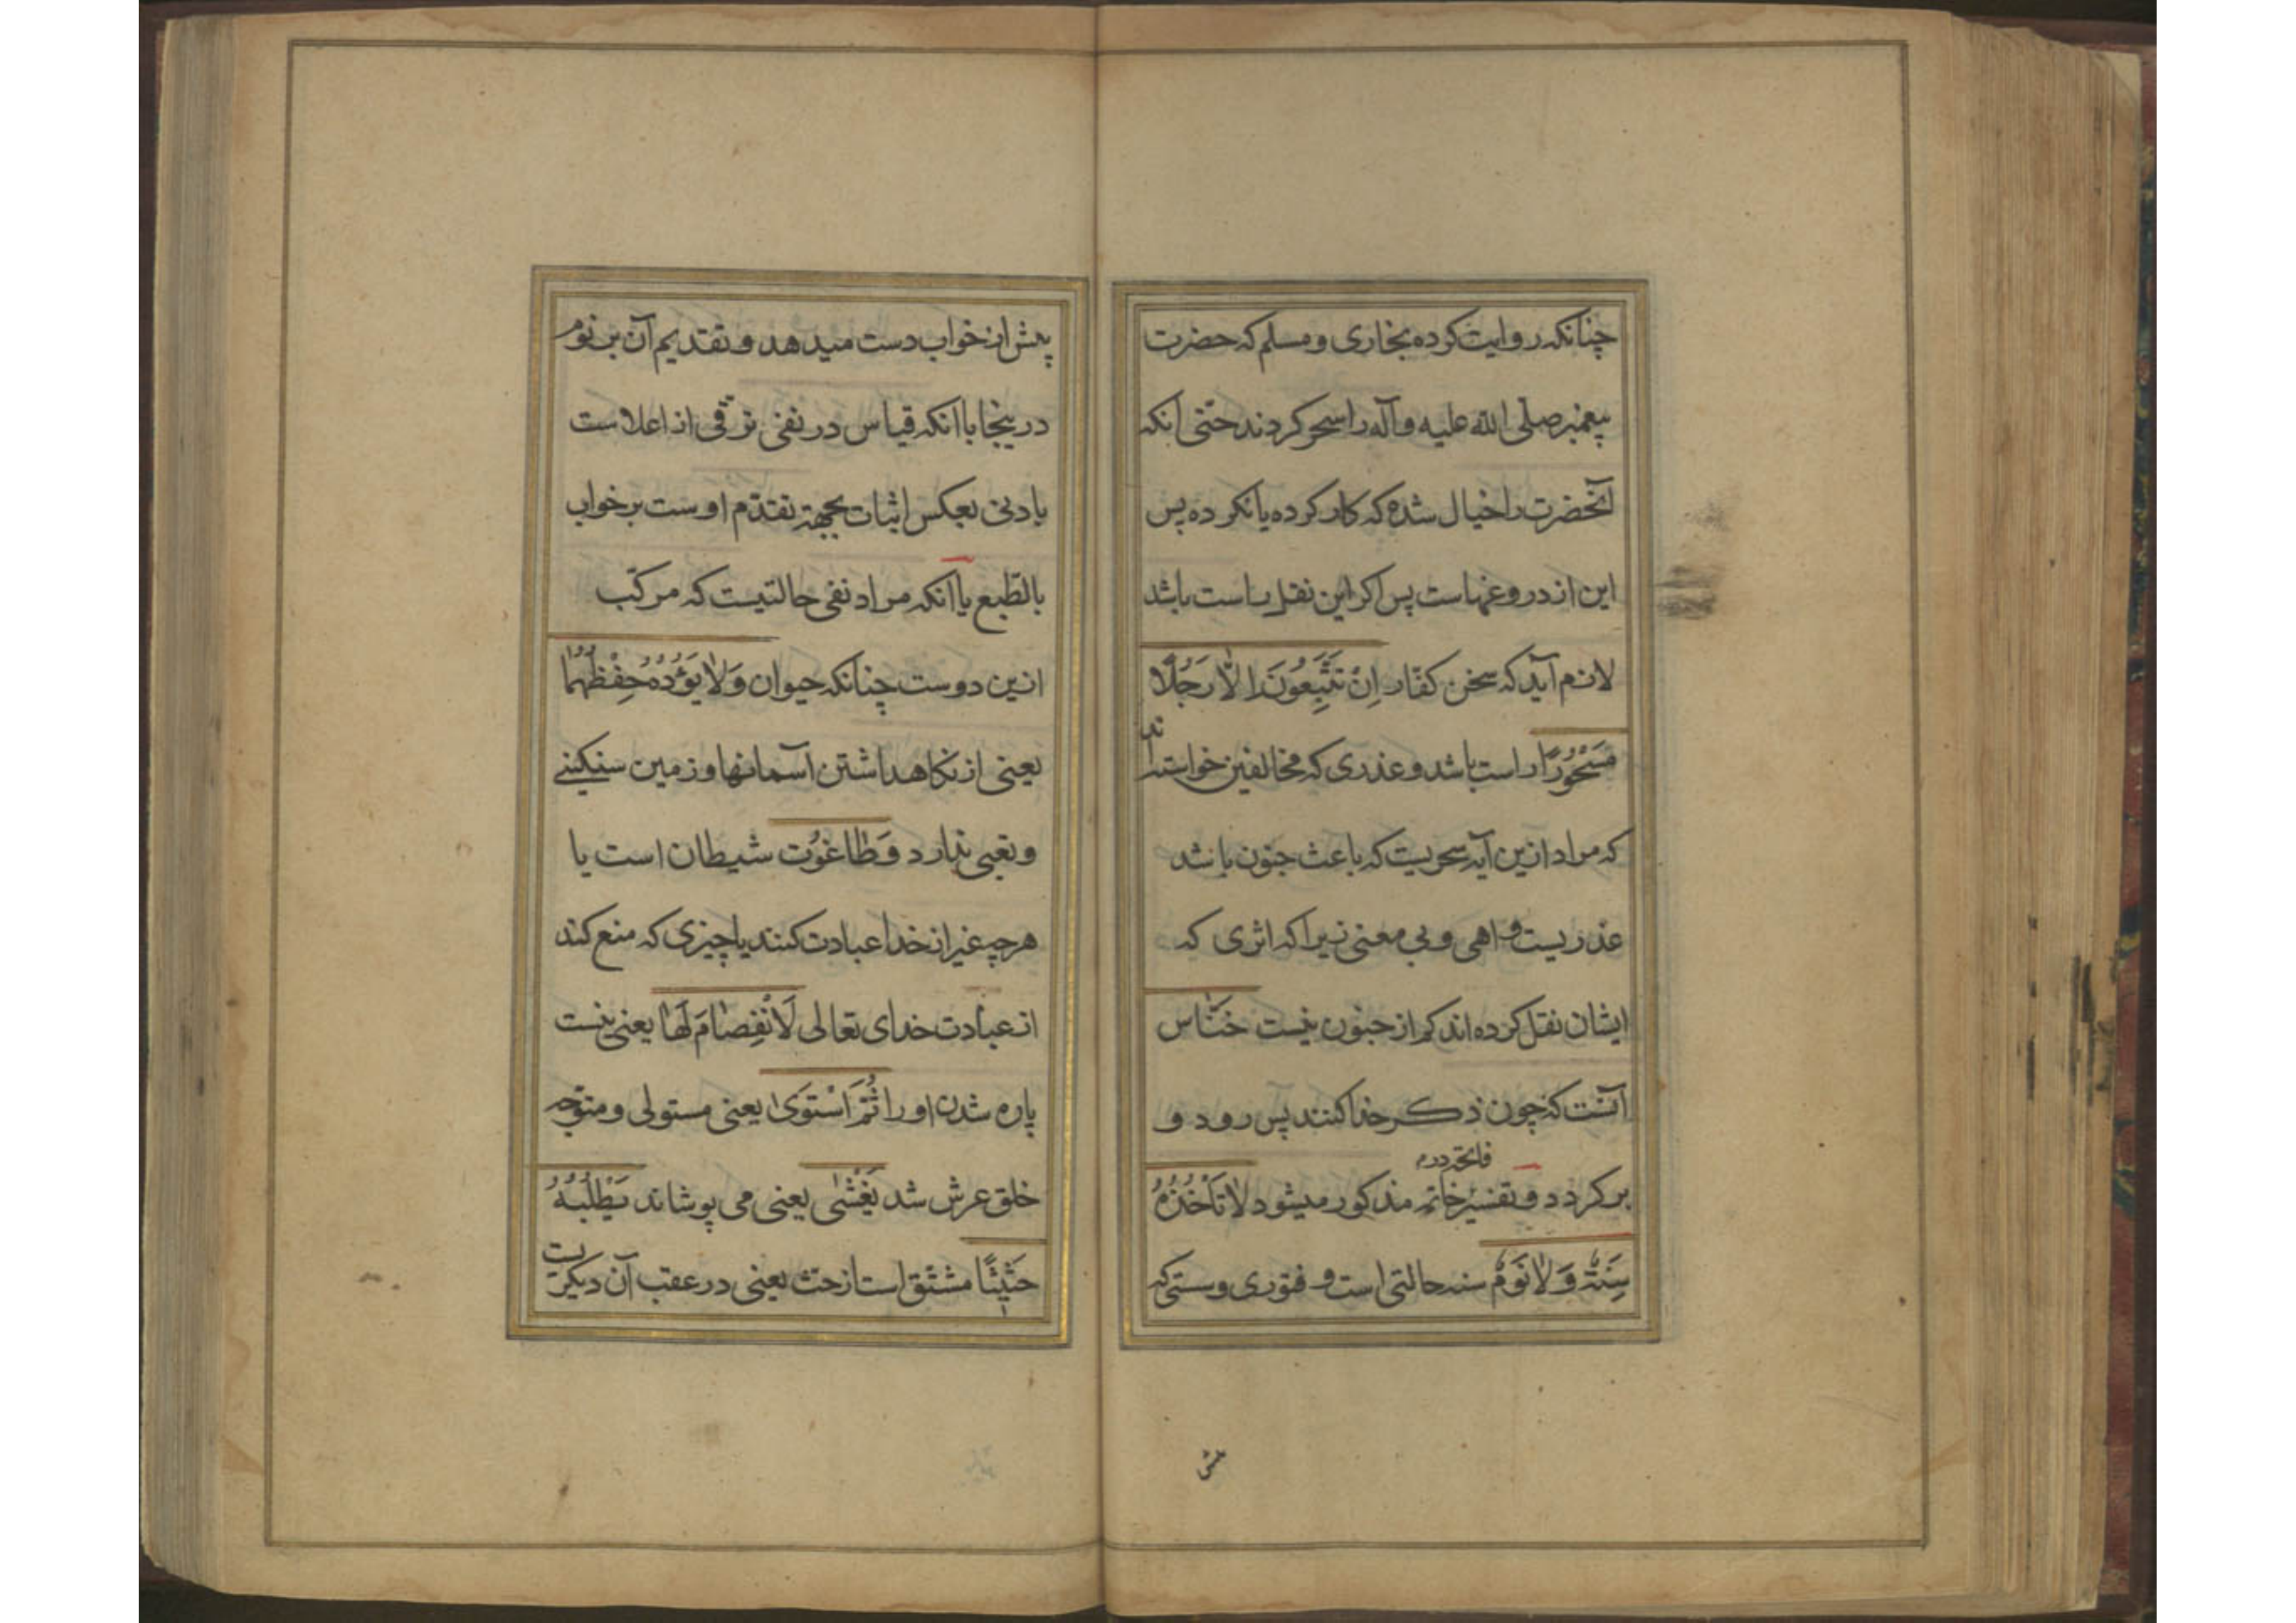 چنانکه روایت کرده بخاری و مسلم که حضرت
پیغمبر صلی الله علیه و آله را سحر کردند حتّی آنکه
آنحضرت را خیال شده که کار کرده یا نکرده پس
این از دروغهاست پس اکر این نقل راست باشد
لازم آید که سخن کفّار اِنْ تَتَّبِعُونَ اِلّا رَجُلًا
مَسْحُورًا راست باشد و عذری که مخالفین خواسته‌اند
که مراد ازین آیه سحریست که باعث جنون باشد
عذریست واهی و بی معنی زیرا که اثری که
ایشان نقل کرده اند کم از جنون نیست خَنّاس
آنست که چون ذکر خدا کنند پس رود و
فاتحه در م
بر کردد و تفسیر خاتم مذکور میشود لَا تَأْخُذُهُ
سِنَةٌ وَلَا نَوْمٌ سنه حالتی است و فتوری و سستی که
پیش
پیش از خواب دست میدهد و تقدیم آن بر نوم
درینجا با آنکه قیاس در نفی ترقّی از اعلاست
بادنی بعکس اثبات بجهة تقدّم اوست بر خواب
بالطّبع یا آنکه مراد نفی حالتیست که مرکّب
ازین دوست چنانکه حیوان وَلَا يَؤُدُهُ حِفْظُهُمَا
یعنی از نکاهداشتن آسمانها و زمین سنکینی
و تعبی ندارد وَطاغُوت شیطان است یا
هر چه غیر از خدا عبادت کنند یا چیزی که منع کند
از عبادت خدای تعالی لَا انْفِصَامَ لَهَا یعنی نیست
پاره شدن او را ثُمَّ اسْتَوَى یعنی مستولی و متوجّه
خلق عرش شد يَغْشٰى یعنی می پوشاند يَطْلُبُهُ
حَثِيثًا مشتق است از حث یعنی در عقب آن دیکریست